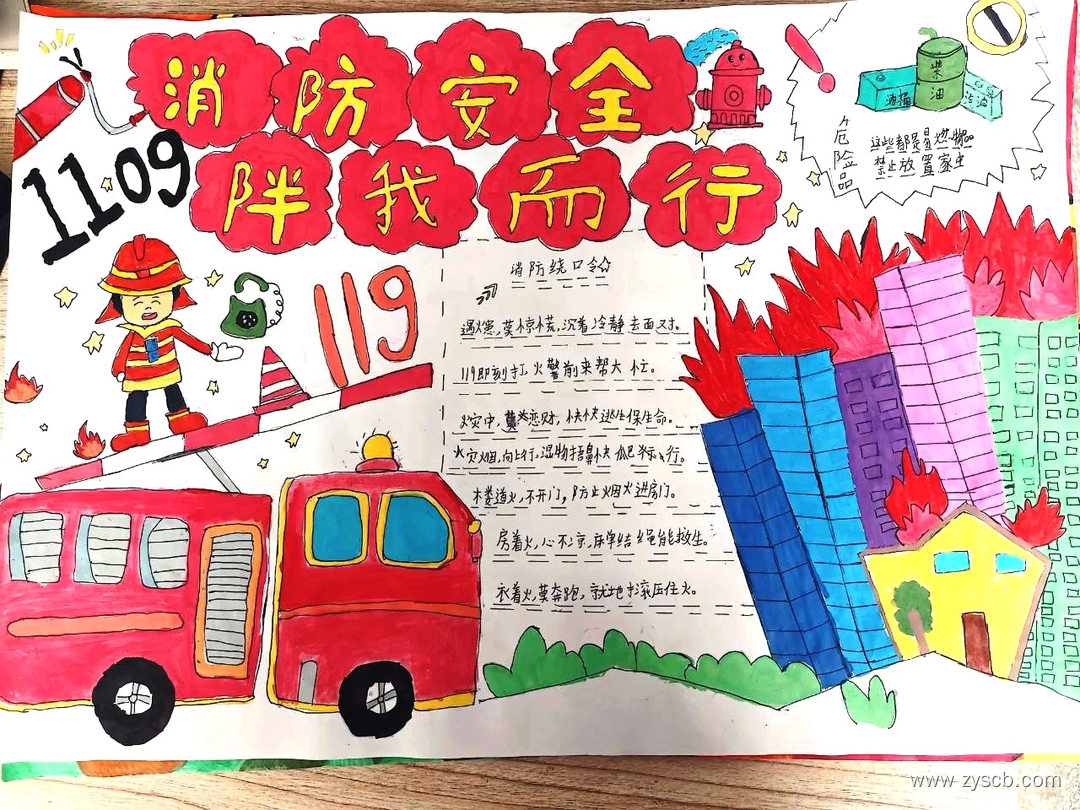 消防安全
伴我而行
1109
119
柴油
酒桶
汽油
危险品
这些都是易燃物品
禁止放置家中
消防绕口令
遇火患,莫惊慌,沉着冷静去面对。
119即刻打,火警前来帮大忙。
火灾中,莫恋财,快快逃生保生命。
火灾烟,向上行,湿物捂鼻快爬行。
木楼道火,不开门,防止烟火进房门。
房着火,心不惊,床单结绳能救生。
衣着火,莫奔跑,就地打滚压住火。
www.zyscb.com